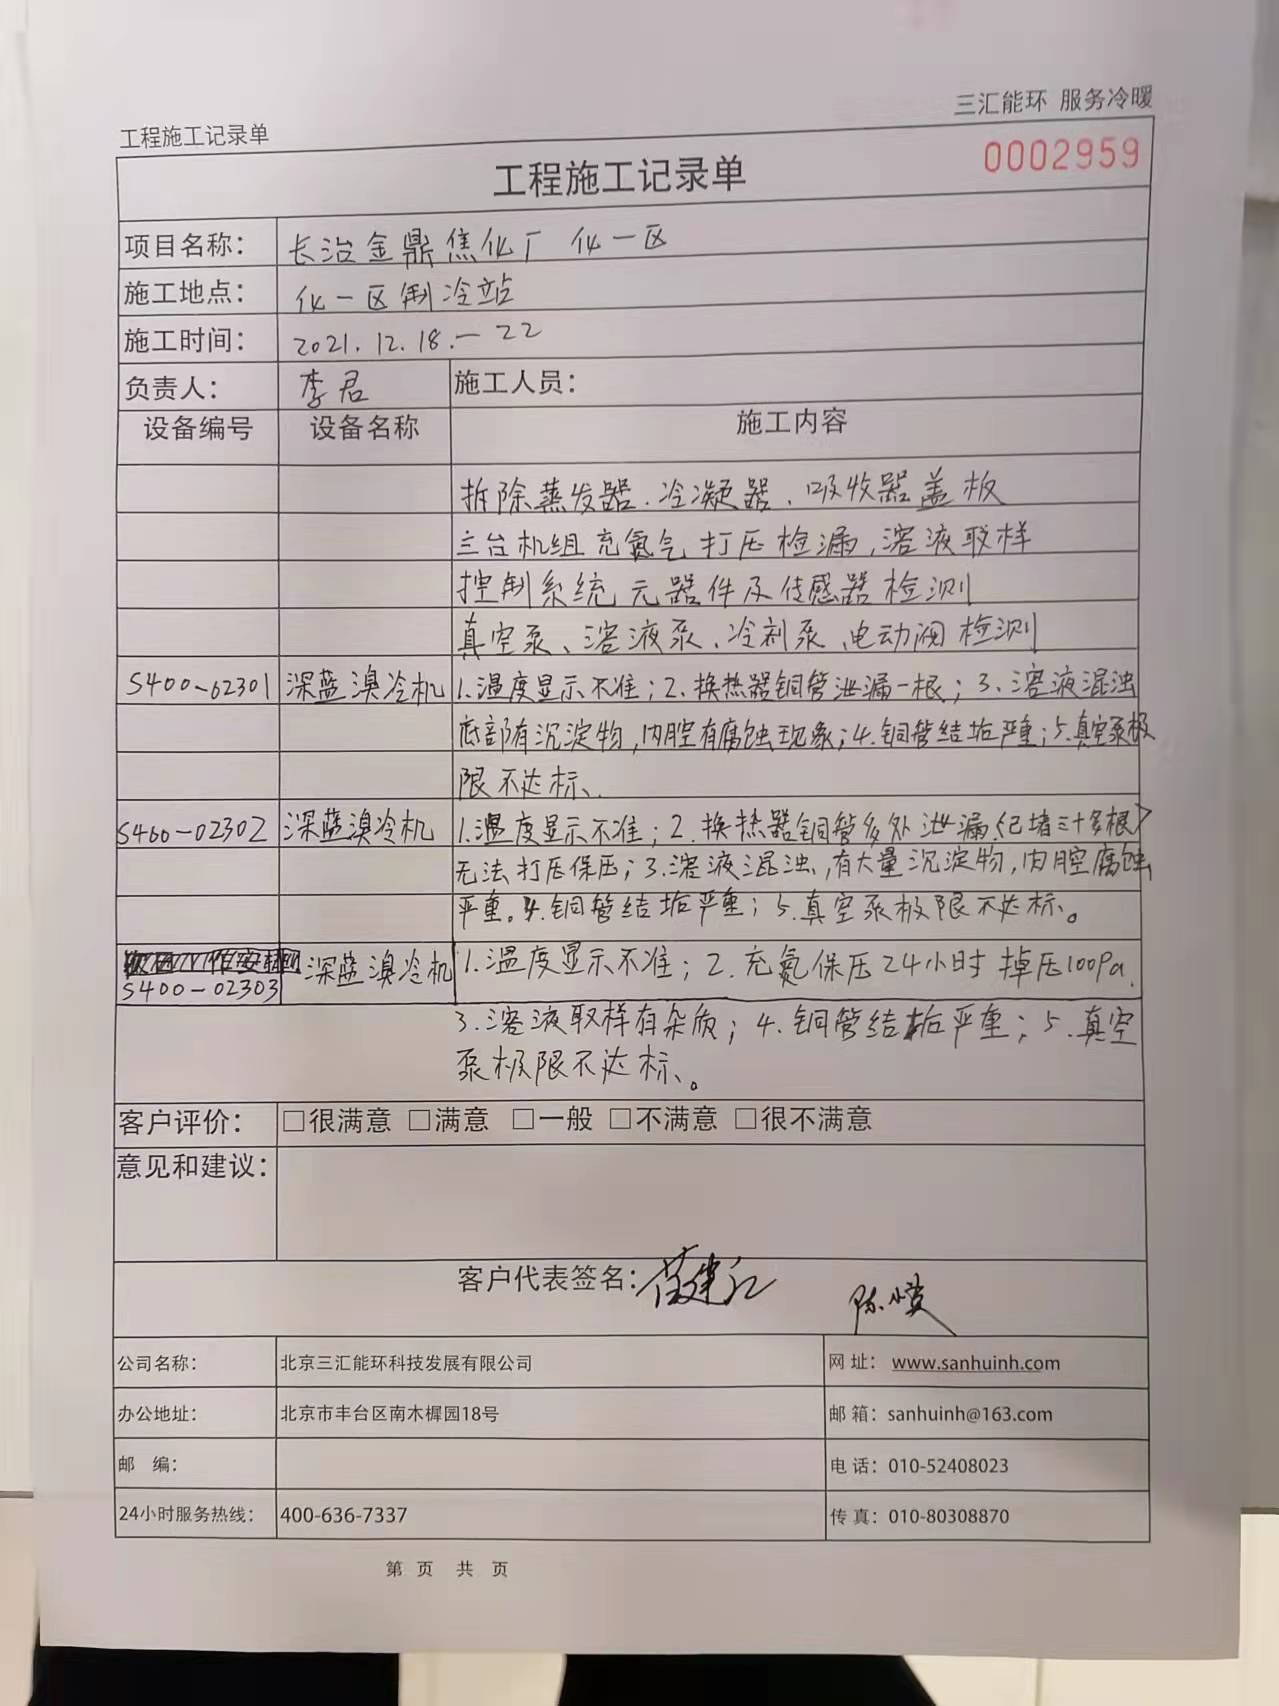 三汇能环 服务冷暖
工程施工记录单
工程施工记录单
0002959
项目名称： 长治金鼎焦化厂 化一区
施工地点： 化一区制冷站
施工时间： 2021.12.18.—22
负责人： 李君 施工人员：
设备编号 设备名称 施工内容
拆除蒸发器、冷凝器、吸收器盖板
三台机组充氮气打压检漏，溶液取样
控制系统元器件及传感器检测
真空泵、溶液泵、冷剂泵、电动阀检测
S400-02301 深蓝溴冷机 1.温度显示不准；2.换热器铜管泄漏一根；3.溶液混浊
底部有沉淀物，内腔有腐蚀现象；4.铜管结垢严重；5.真空泵极
限不达标、
S400-02302 深蓝溴冷机 1.温度显示不准；2.换热器铜管多处泄漏〈已堵三十多根〉
无法打压保压；3.溶液混浊，有大量沉淀物，内腔腐蚀
严重。4.铜管结垢严重；5.真空泵极限不达标。
S400-02303 深蓝溴冷机 1.温度显示不准；2.充氮保压24小时掉压100Pa.
3.溶液取样有杂质；4.铜管结垢严重；5.真空
泵极限不达标、。
客户评价： □很满意 □满意 □一般 □不满意 □很不满意
意见和建议：
客户代表签名：
公司名称： 北京三汇能环科技发展有限公司 网 址： www.sanhuinh.com
办公地址： 北京市丰台区南木樨园18号 邮 箱：sanhuinh@163.com
邮 编： 电 话：010-52408023
24小时服务热线： 400-636-7337 传 真：010-80308870
第 页 共 页